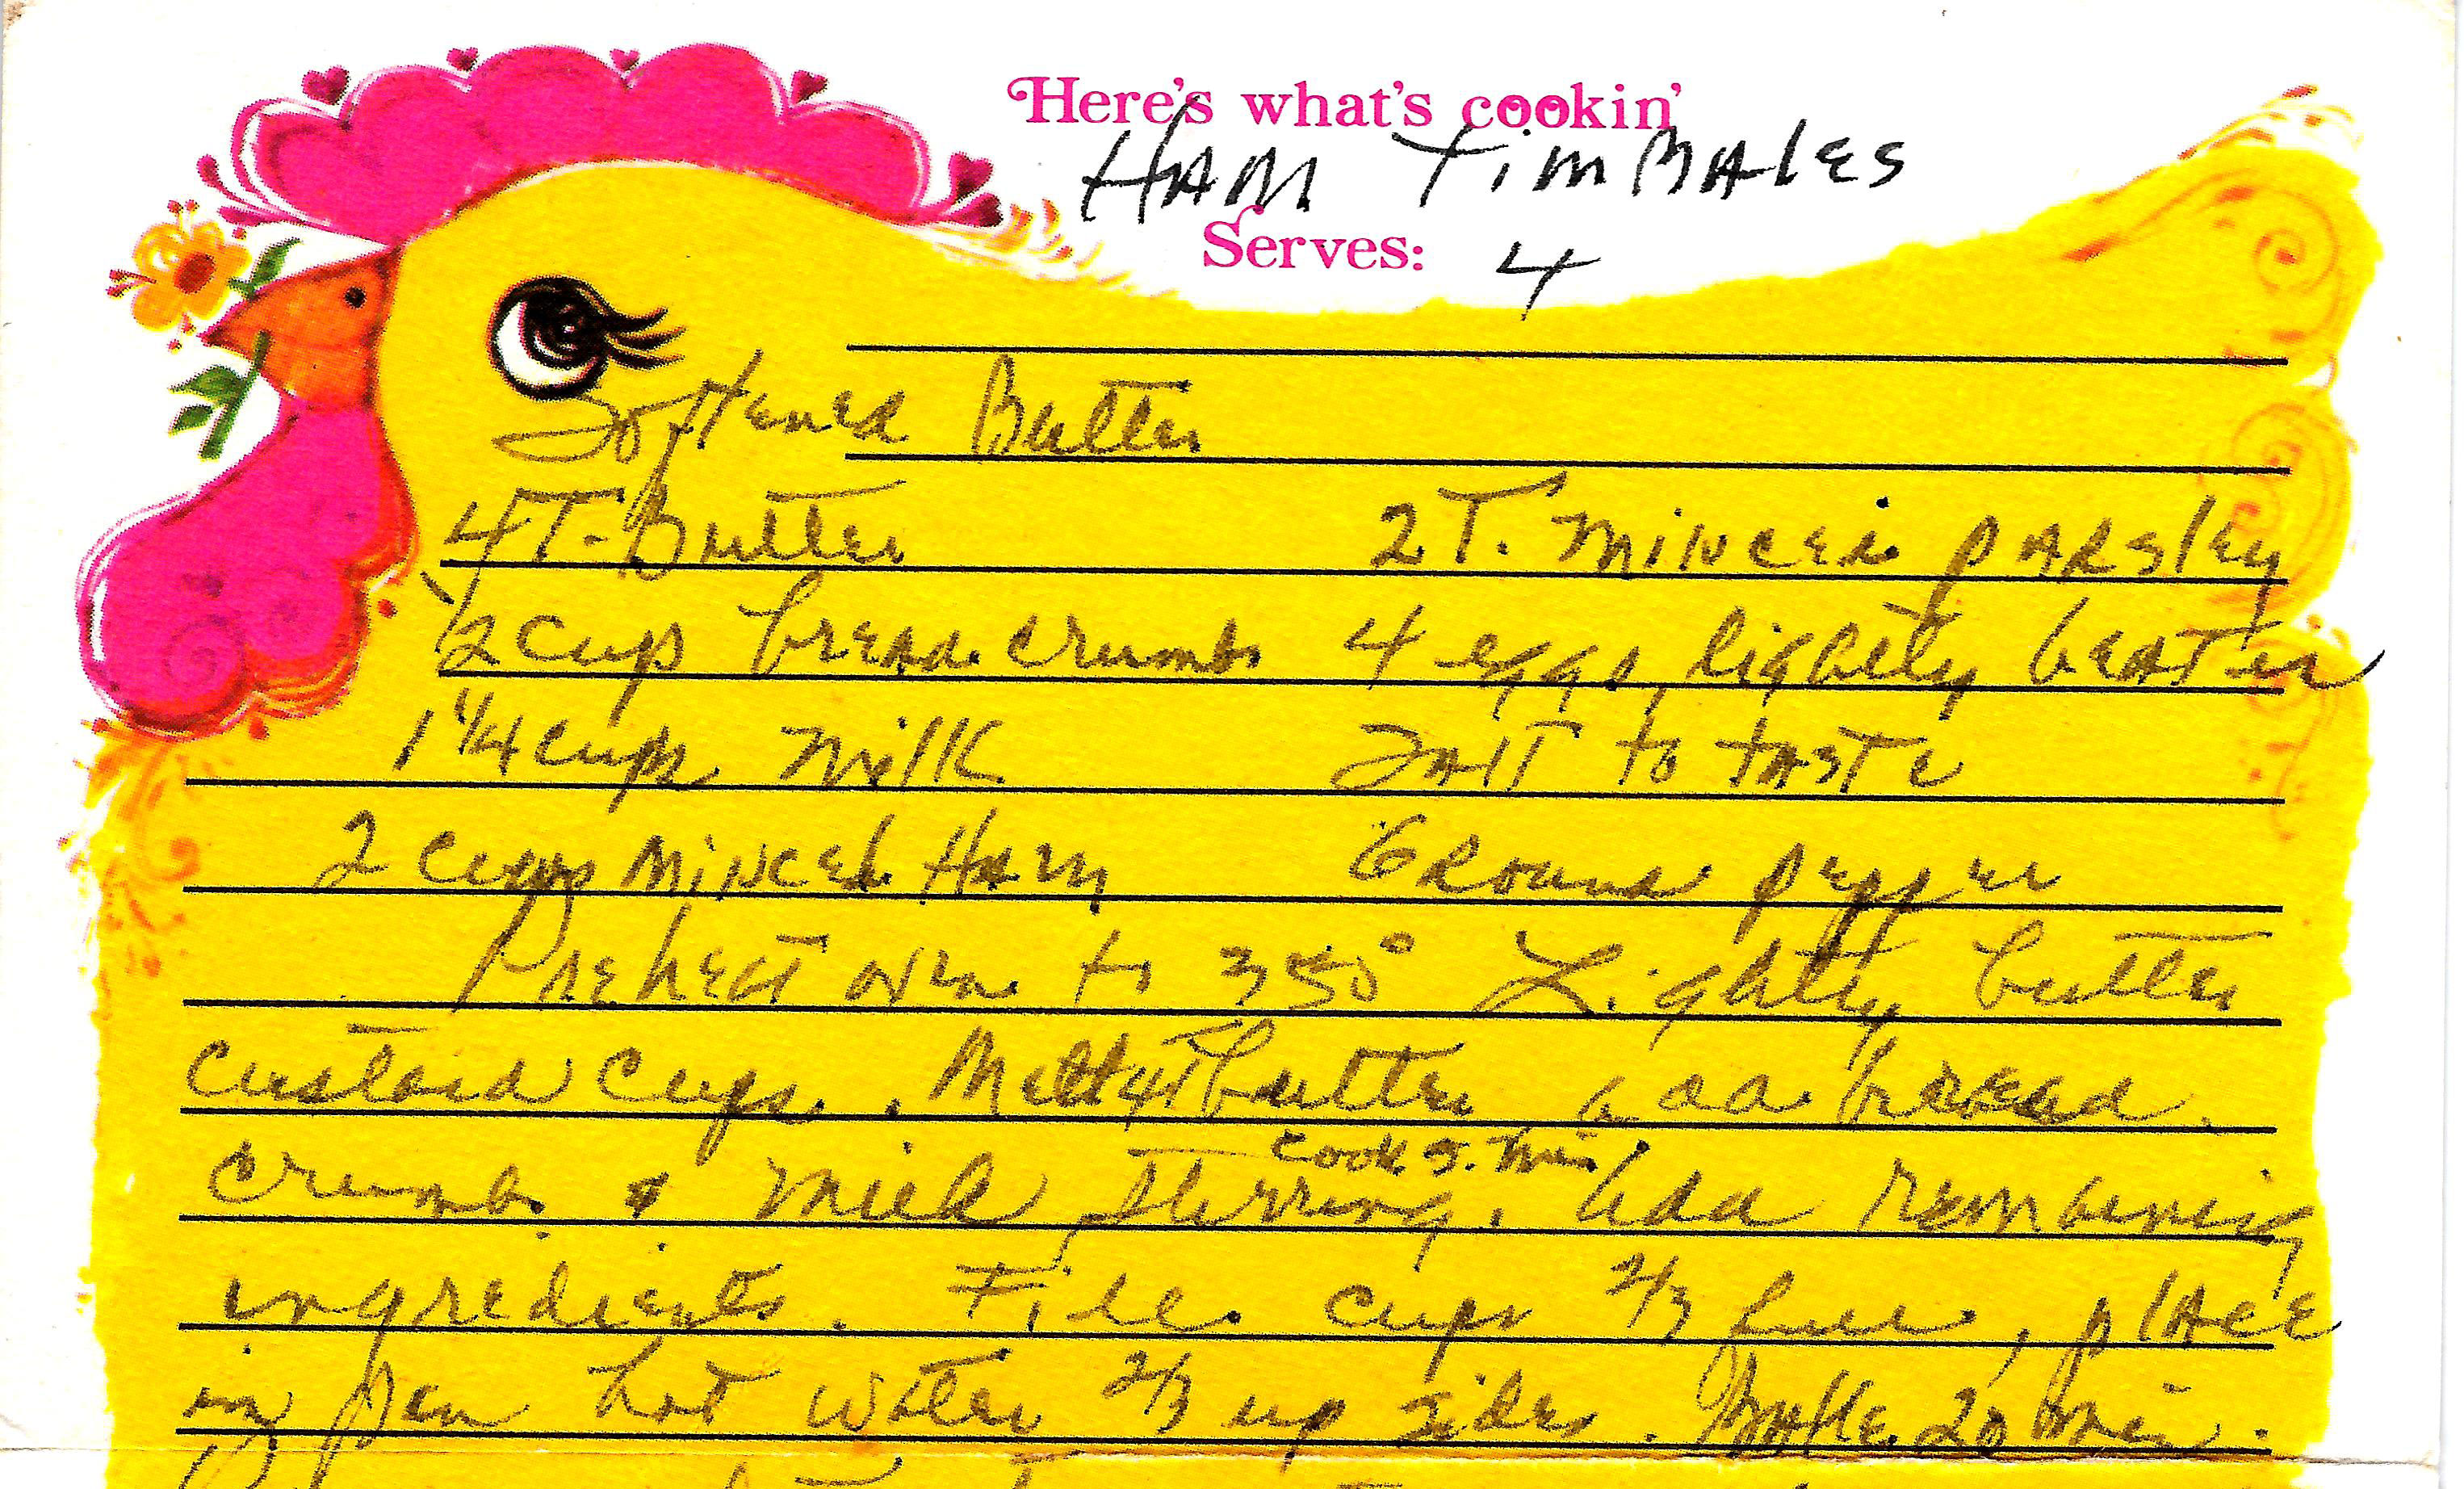 Here's what's cookin'
HAM TimBAles
Serves: 4
Softened Butter
4T. Butter 2T. Minced parsley
1/2 cup bread crumbs 4 eggs, lightly beaten
1 1/4 cups milk Salt to taste
2 cups Minced Ham Ground pepper
Preheat oven to 350° Lightly butter
custard cups. Melt 4T butter add bread
crumbs & milk stirring, cook 5. min. add remaining
ingredients. Fill cups 2/3 full, place
in pan hot water 2/3 up sides. Bake 20 min.